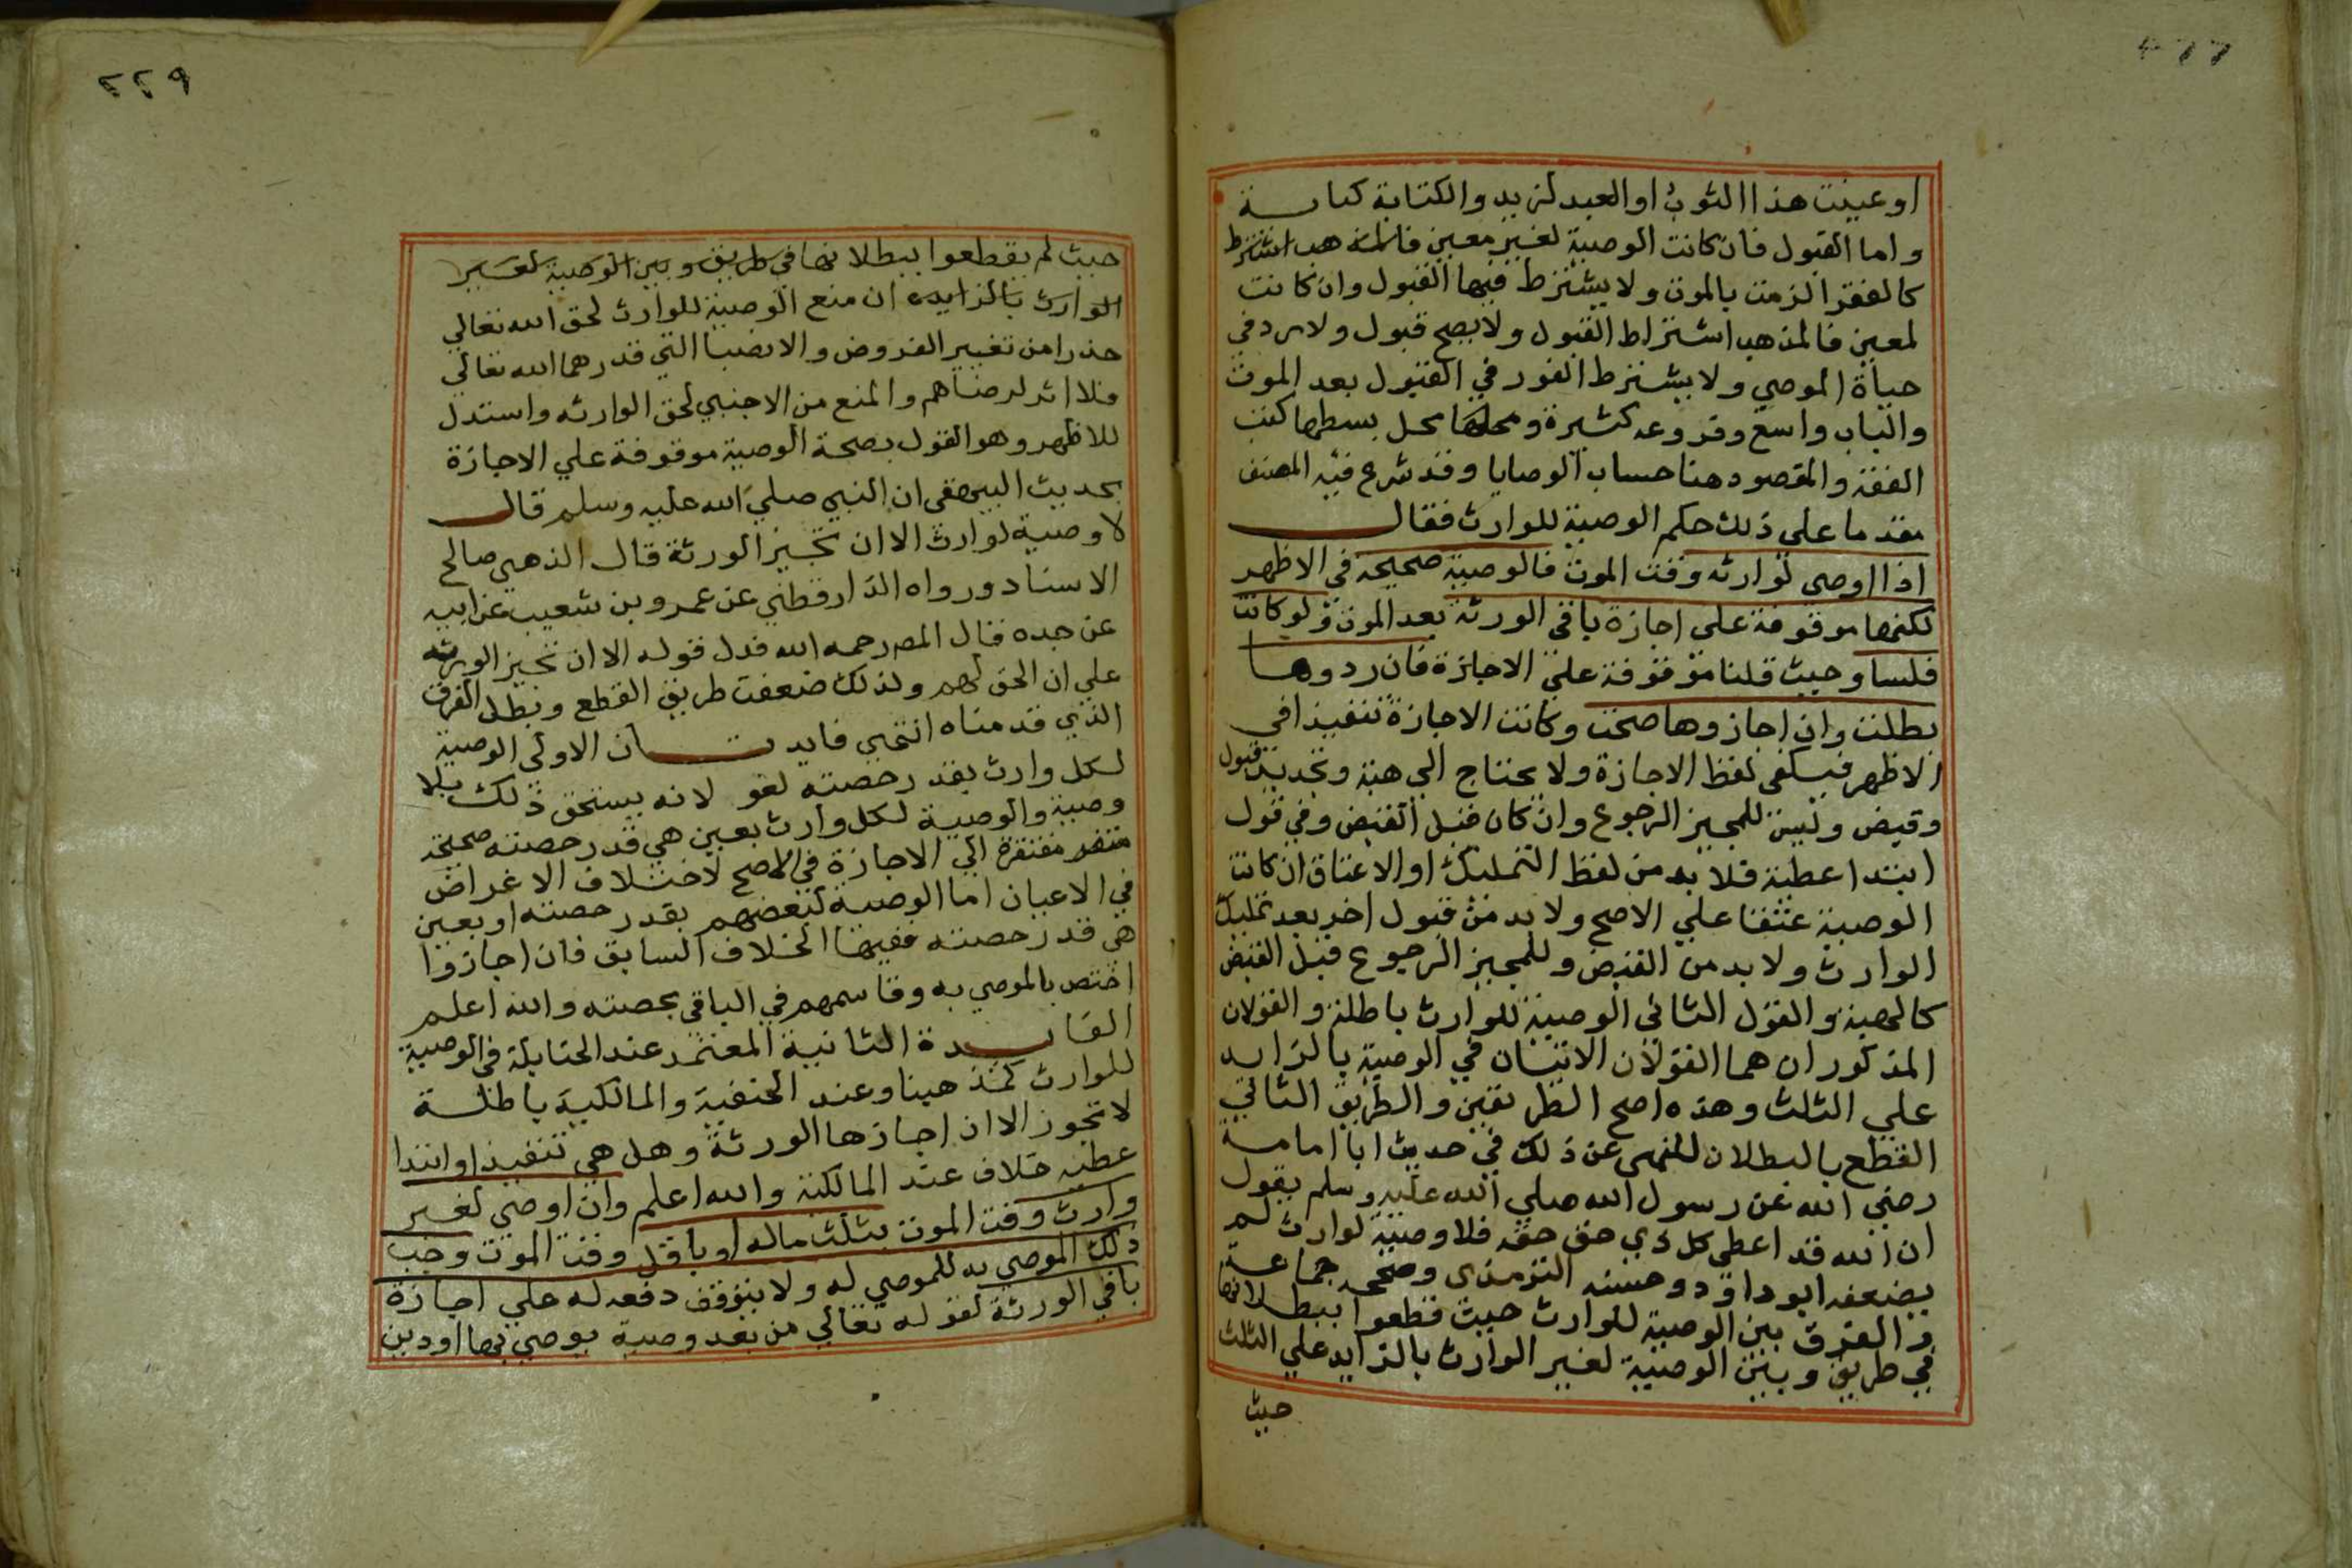 او عينت هذا الثوب او العبد لزيد والكتابة كناية
واما القبول فان كانت الوصية لغير معين
كالفقرا لزمت بالموت ولا يشترط فيها القبول وان كانت
لمعين فالمذهب اشتراط القبول ولا يصح قبول ولا رد في
حياة الموصي ولا يشترط الفور في القبول بعد الموت
والباب واسع وفروعه كثيرة ومحلها محل بسطها كتب
الفقه والمقصود هنا حساب الوصايا وقد شرع فيه المصنف
مقدما على ذلك حكم الوصية للوارث فقال
اذا اوصى لوارثه وقت الموت فالوصية صحيحة في الاظهر
لكنها موقوفة على اجازة باقي الورثة بعد الموت ولو كانت
فلسا وحيث قلنا موقوفة على الاجازة فان ردوها
بطلت وان اجازوها صحت وكانت الاجازة تنفيذا في
الاظهر فيكفي لفظ الاجازة ولا يحتاج الى هبة وتجديد قبول
وقبض وليس للمجيز الرجوع وان كان قبل القبض وفي قول
ابتدا عطية فلا بد من لفظ التمليك او الاعتاق ان كانت
الوصية عتقا علي الاصح ولا بد من قبول اخر بعد تمليك
الوارث ولا بد من القبض وللمجيز الرجوع قبل القبض
كالهبة والقول الثاني الوصية للوارث باطلة والقولان
المذكوران هما القولان الاتيان في الوصية بالزايد
علي الثلث وهذه اصح الطريقين والطريق الثاني
القطع بالبطلان للنهى عن ذلك في حديث ابا امامة
رضي الله عن رسول الله صلي الله عليه وسلم يقول
ان الله قد اعطى كل ذي حق حقه فلا وصية لوارث لم
يضعفه ابو داود وحسنه الترمذى وصححه جماعة
والفرق بين الوصية للوارث حيث قطعوا ببطلانها
في طريق وبين الوصية لغير الوارث بالزايد علي الثلث
حيث
٢٢٩
حيث لم يقطعوا ببطلانها في طريق وبين الوصية لغير
الوارث بالزايد ان منع الوصية للوارث لحق الله تعالي
حذرا من تغيير الفروض والانصبا التي قدرهما الله تعالي
فلا اثر لرضاهم والمنع من الاجنبي لحق الوارثه واستدل
للاظهر وهو القول بصحة الوصية موقوفة علي الاجازة
بحديث البيهقى ان النبي صلي الله عليه وسلم قال
لا وصية لوارث الا ان تجيز الورثة قال الذهبي صالح
الاسناد ورواه الدارقطني عن عمرو بن شعيب عن ابيه
عن جده قال المصـ رحمه الله فدل قوله الا ان تجيز الورثه
علي ان الحق لهم ولذلك ضعفت طريق القطع وبطل الفرق
الذي قدمناه انتهي فايدتان الاولي الوصية
لكل وارث بقدر حصته لغو لانه يستحق ذلك بلا
وصية والوصية لكل وارث بعين هي قدر حصته صحيحة
مفتقرة الي الاجازة في الاصح لاختلاف الاغراض
في الاعيان اما الوصية لبعضهم بقدر حصته او بعين
هي قدر حصته ففيها الخلاف السابق فان اجازوا
اختص بالموصي به وقاسمهم في الباقي بحصته والله اعلم
الفايدة الثانية المعتمد عند الحنابلة في الوصية
للوارث كمذهبنا وعند الحنفية والمالكية باطلة
لا تجوز الا ان اجازها الورثة وهل هي تنفيذ او ابتدا
عطيه خلاف عند المالكية والله اعلم وان اوصي لغير
وارث وقت الموت بثلث ماله او باقل وقت الموت وجب
ذلك الموصي به للموصي له ولا يتوقف دفعه له علي اجازة
باقي الورثة لقوله تعالي من بعد وصية يوصي بها او دين